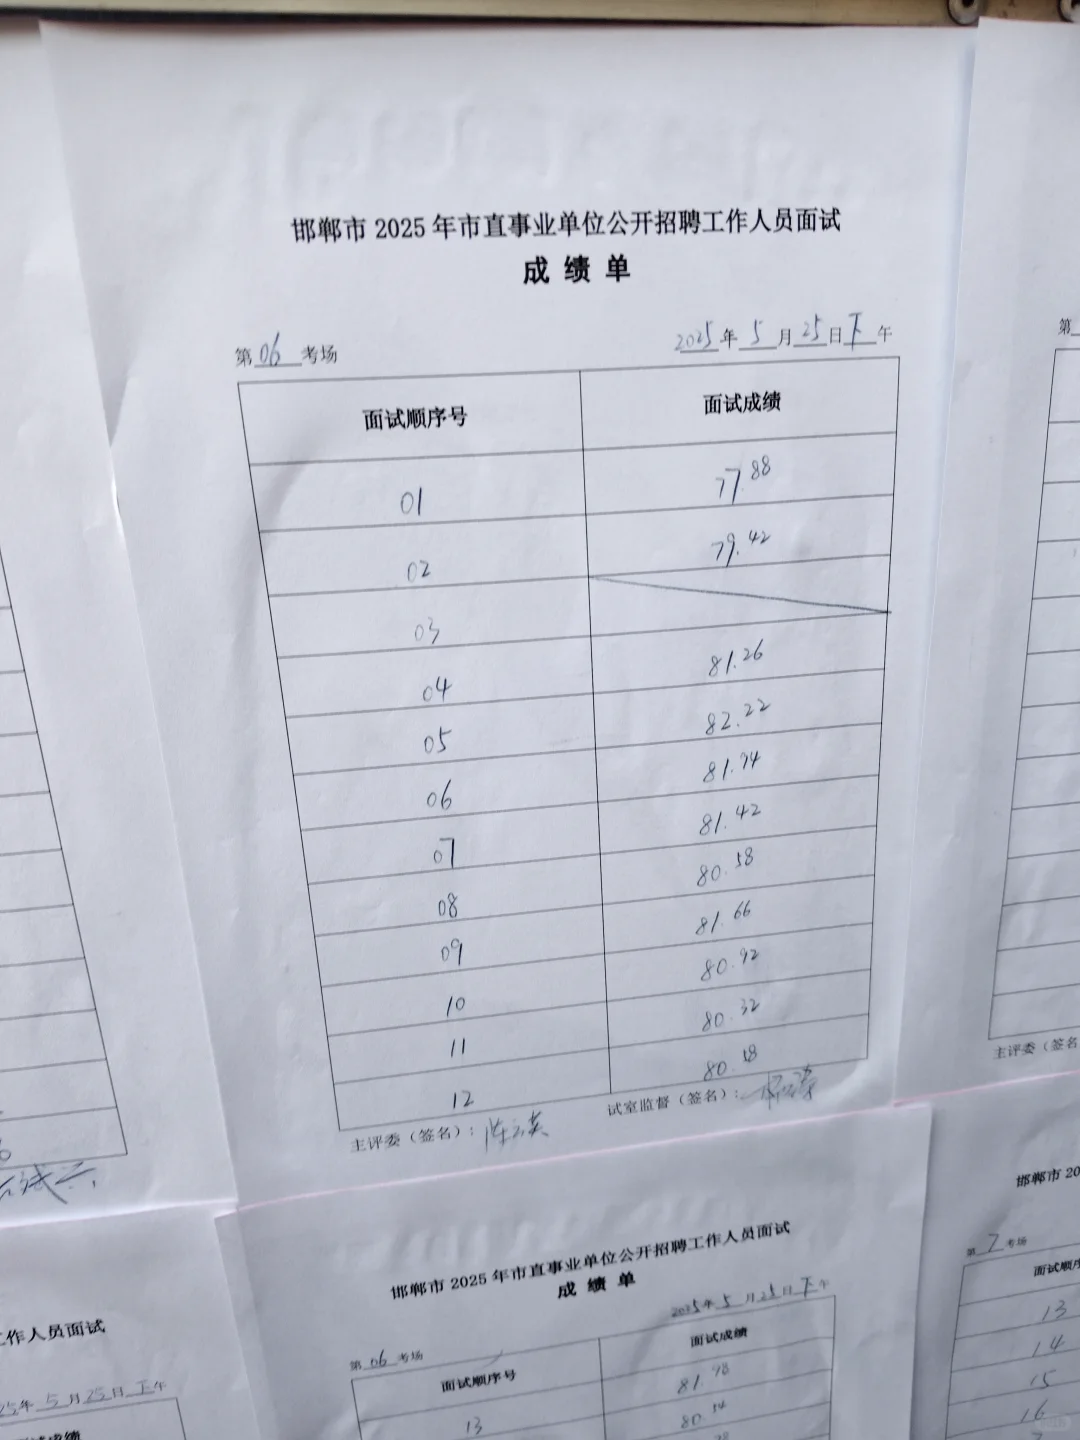 邯郸市 2025 年市直事业单位公开招聘工作人员面试
成 绩 单
第 06 考场 2025年 5 月 25日下午
面试顺序号 面试成绩
01 77.88
02 79.42
03
04 81.26
05 82.22
06 81.74
07 81.42
08 80.58
09 81.66
10 80.92
11 80.32
12 80.18
主评委（签名）： 试室监督（签名）：
第
主评委（签名
邯郸市 2025 年市直事业单位公开招聘工作人员面试
成 绩 单
2025年 5 月25日下午
第 06 考场
面试顺序号 面试成绩
13 81.98
80.54
工作人员面试
25年 5 月25日下午
邯郸市 20
第 7 考场
面试顺序
13
14
15
16